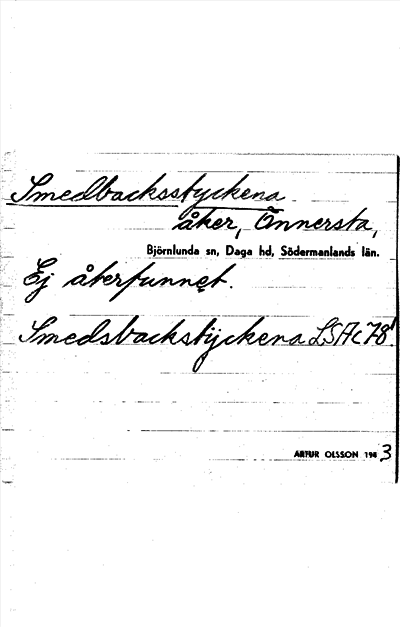 Smedbacksstyckena
åker, Önnersta,
Björnlunda sn, Daga hd, Södermanlands län.
Ej återfunnet.
Smedsbackstÿckena LSA C 78¹
ARTUR OLSSON 1983